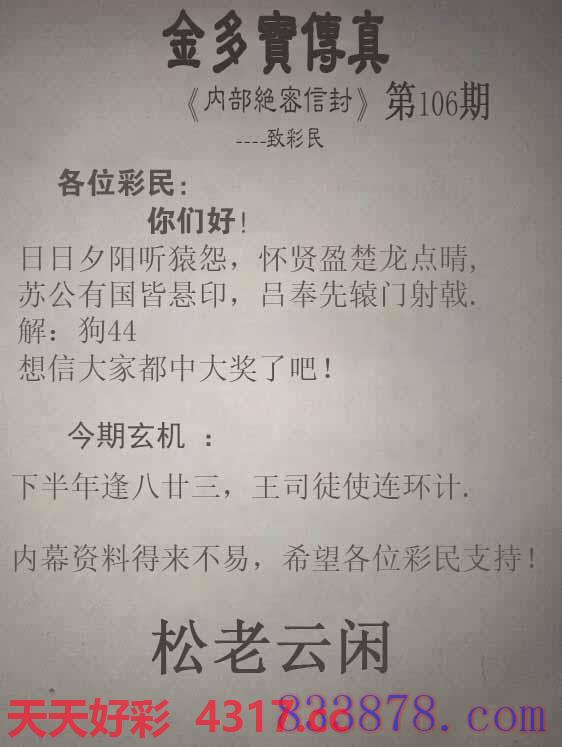 金多寳傳真
《内部絶密信封》第106期
----致彩民
各位彩民:
你们好!
日日夕阳听猿怨，怀贤盈楚龙点晴,
苏公有国皆悬印，吕奉先辕门射戟.
解：狗44
想信大家都中大奖了吧！
今期玄机 ：
下半年逢八廿三，王司徒使连环计.
内幕资料得来不易，希望各位彩民支持！
松老云闲
天天好彩 4317.cc
833878.com